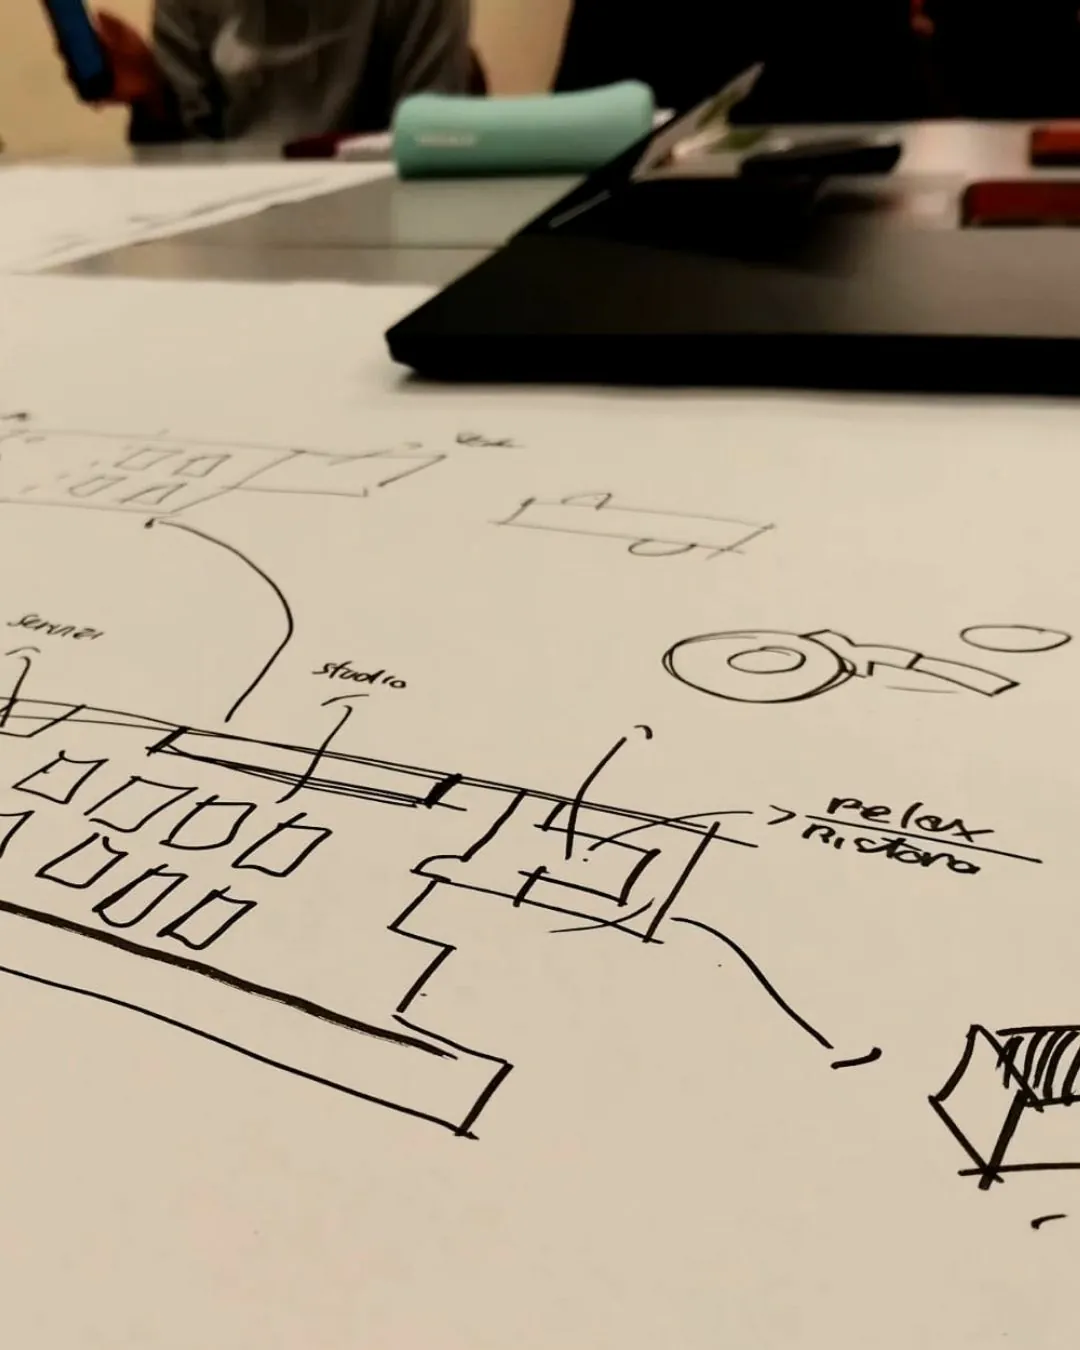 servizi
studio
Relax
Ristoro